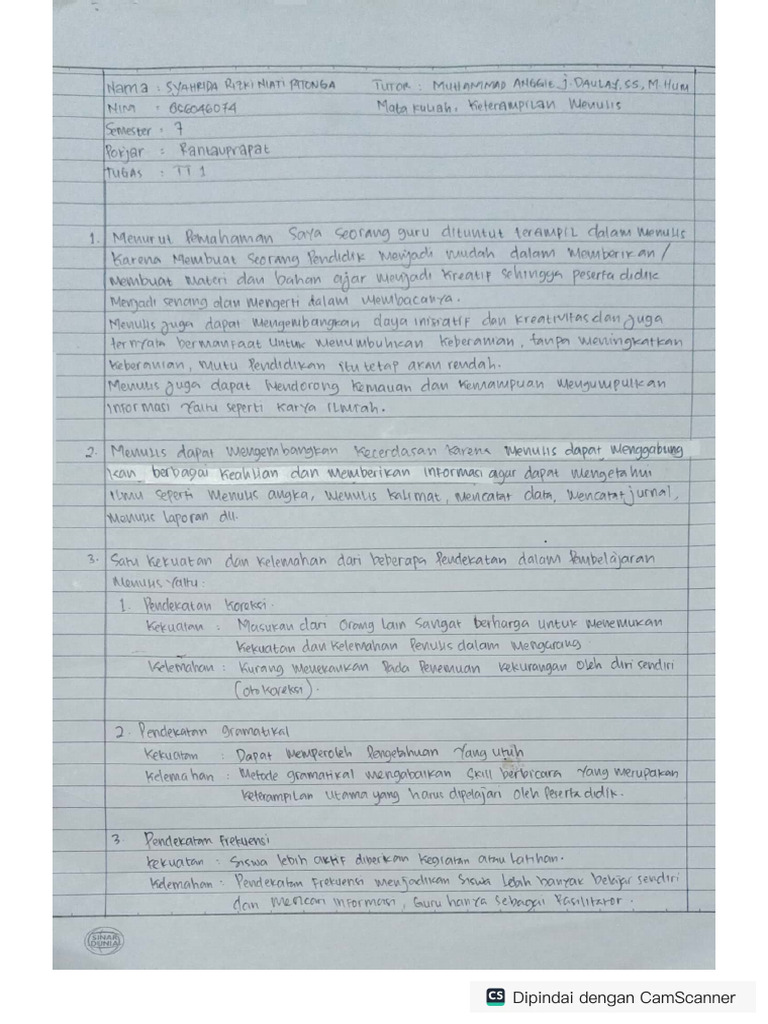 Nama : SYAHRIDA RIZKI NIATI PATONGA Tutor : MUHAMMAD ANGGIE J. DAULAY, SS, M.HUM
NIM : 856046074 Mata kuliah : Keterampilan Menulis
Semester : 7
Pokjar : Rantauprapat
TUGAS : TT 1
1. Menurut Pemahaman Saya seorang guru dituntut terampil dalam menulis
Karena Membuat Seorang Pendidik Menjadi mudah dalam Memberikan /
Membuat Materi dan bahan ajar Menjadi Kreatif sehingga peserta didik
Menjadi senang dan Mengerti dalam Membacanya.
Menulis juga dapat Mengembangkan daya inisiatif dan kreativitas dan juga
ternyata bermanfaat untuk Menumbuhkan Keberanian, tanpa Meningkatkan
Keberanian, Mutu Pendidikan itu tetap akan rendah.
Menulis juga dapat Mendorong Kemauan dan Kemampuan Mengumpulkan
Informasi Yaitu seperti Karya Ilmiah.
2. Menulis dapat Mengembangkan Kecerdasan Karena Menulis dapat Menggabung
kan berbagai Keahlian dan Memberikan Informasi agar dapat Mengetahui
Ilmu seperti Menulis angka, Menulis Kalimat, Mencatat data, Mencatat jurnal,
Menulis laporan dll.
3. Satu Kekuatan dan Kelemahan dari beberapa Pendekatan dalam Pembelajaran
Menulis Yaitu :
1. Pendekatan Koreksi.
Kekuatan : Masukan dari Orang lain Sangat berharga untuk Menemukan
Kekuatan dan Kelemahan Penulis dalam Mengarang.
Kelemahan : Kurang Menekankan Pada Penemuan Kekurangan oleh diri sendiri
(oto koreksi).
2. Pendekatan gramatikal
Kekuatan : Dapat Memperoleh Pengetahuan Yang utuh
Kelemahan : Metode gramatikal mengabaikan Skill berbicara Yang merupakan
Keterampilan Utama yang harus dipelajari oleh Peserta didik.
3 Pendekatan Frekuensi
Kekuatan : Siswa lebih aktif diberikan Kegiatan atau latihan.
Kelemahan : Pendekatan Frekuensi menjadikan Siswa Lebih banyak belajar sendiri
dan Mencari Informasi, Guru hanya Sebagai Fasilitator.
SINAR
DUNIA
CS Dipindai dengan CamScanner